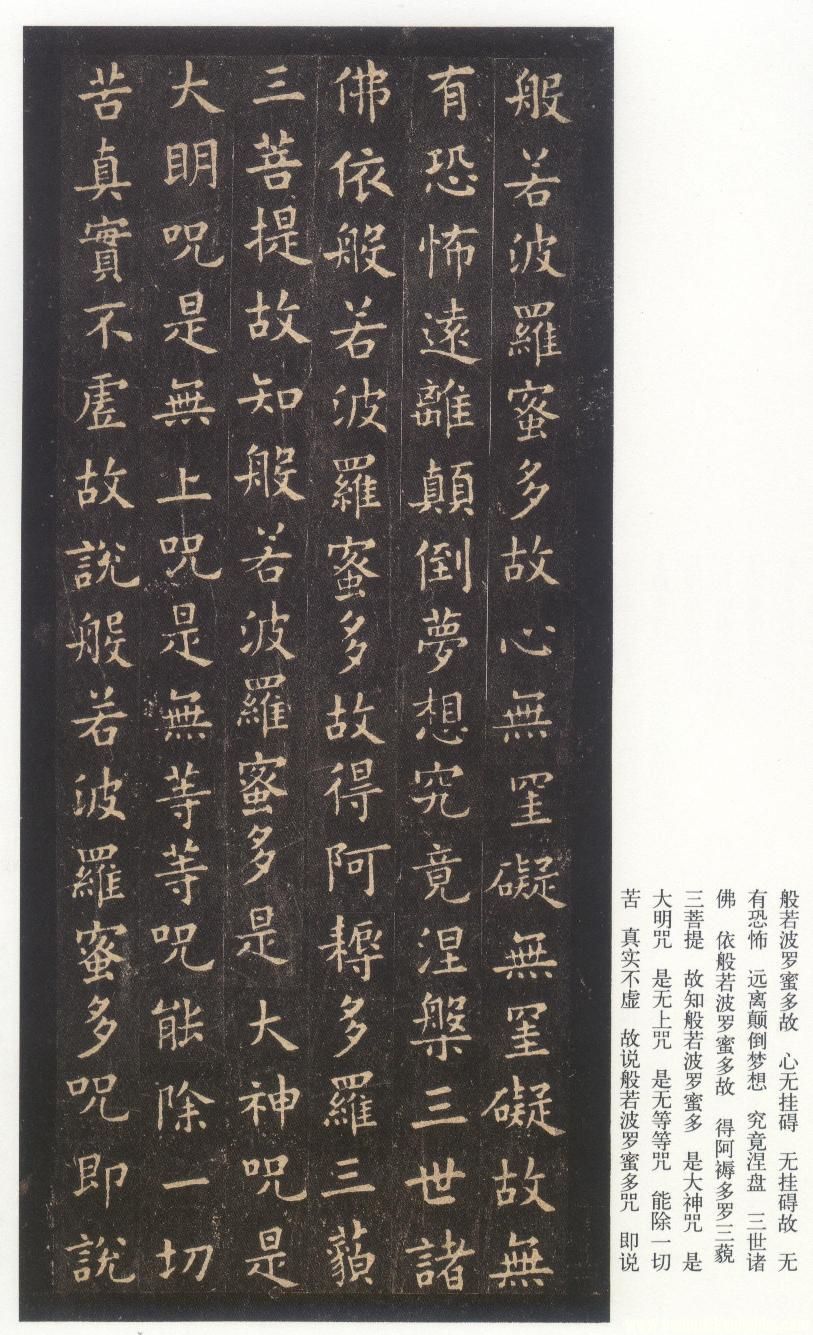 般若波羅蜜多故心無罣礙無罣礙故無
有恐怖遠離顛倒夢想究竟涅槃三世諸
佛依般若波羅蜜多故得阿耨多羅三藐
三菩提故知般若波羅蜜多是大神呪是
大明呪是無上呪是無等等呪能除一切
苦真實不虛故說般若波羅蜜多呪即說
般若波罗蜜多故 心无挂碍 无挂碍故 无
有恐怖 远离颠倒梦想 究竟涅盘 三世诸
佛 依般若波罗蜜多故 得阿褥多罗三藐
三菩提 故知般若波罗蜜多 是大神咒 是
大明咒 是无上咒 是无等等咒 能除一切
苦 真实不虚 故说般若波罗蜜多咒 即说